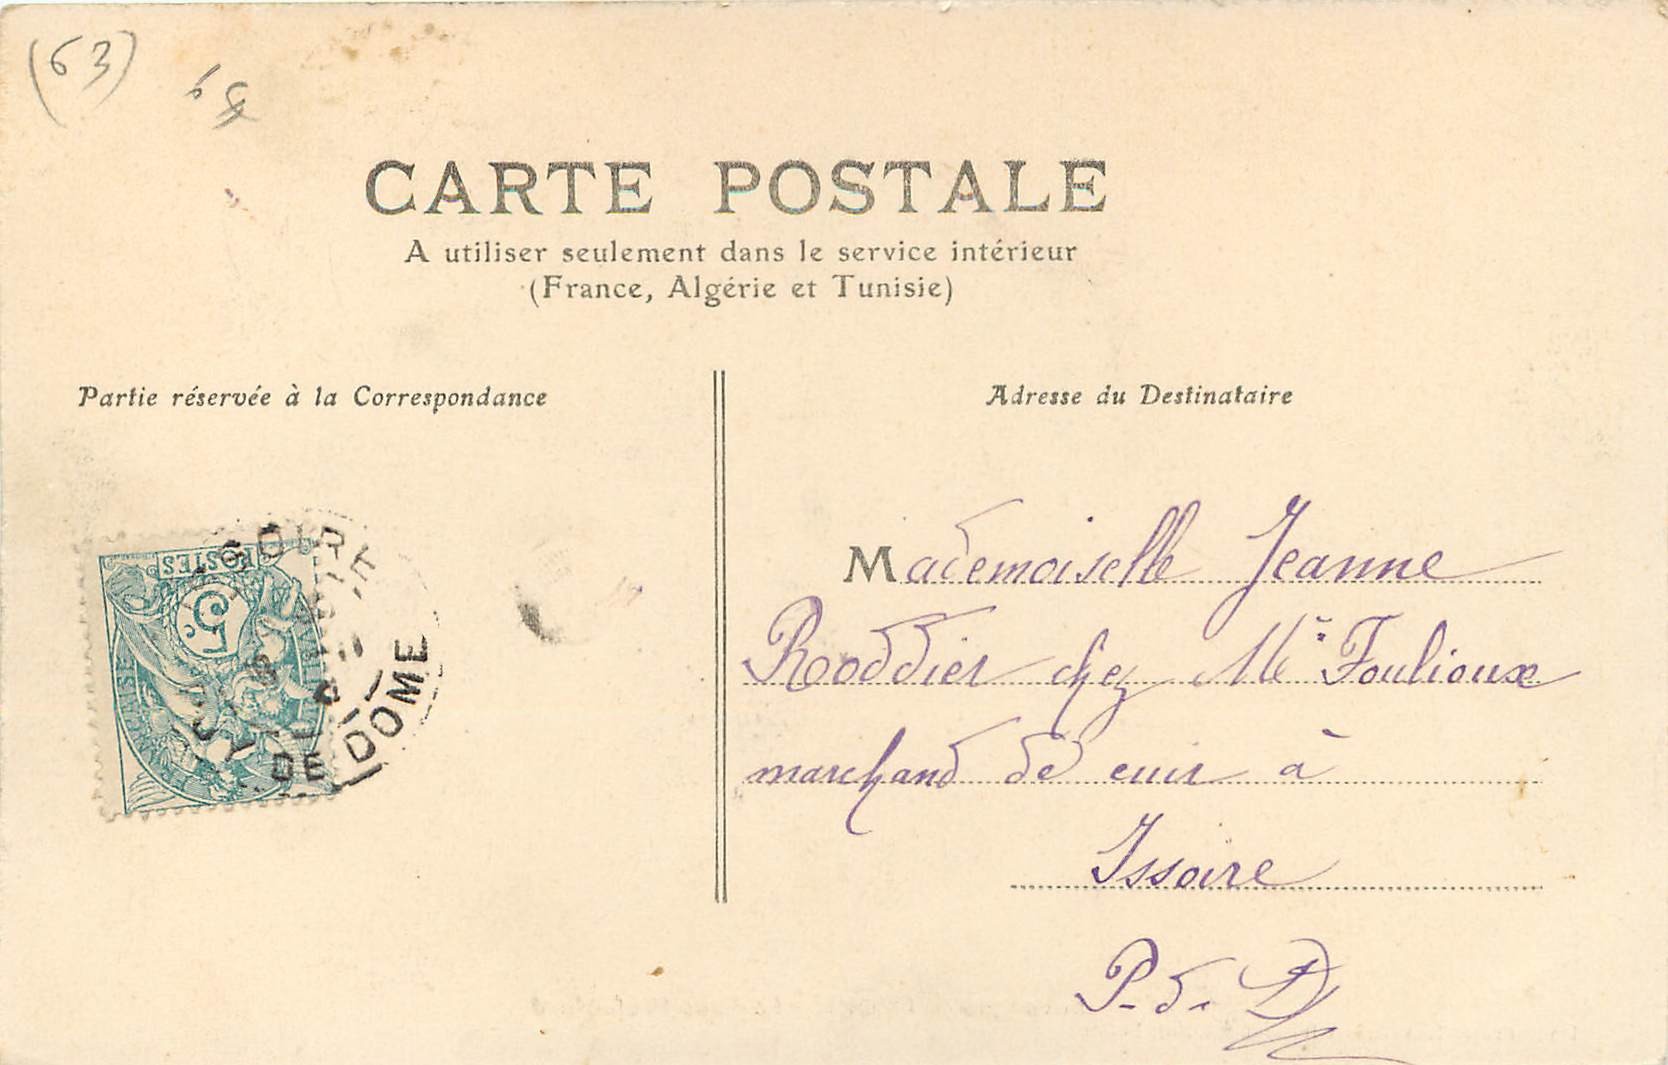 (63)
CARTE POSTALE
A utiliser seulement dans le service intérieur
(France, Algérie et Tunisie)
Partie réservée à la Correspondance
Adresse du Destinataire
POSTES
5c
DE DOME
Mademoiselle Jeanne
Roddier chez Mr Foulioux
marchand de cuir à
Issoire
P. d. D